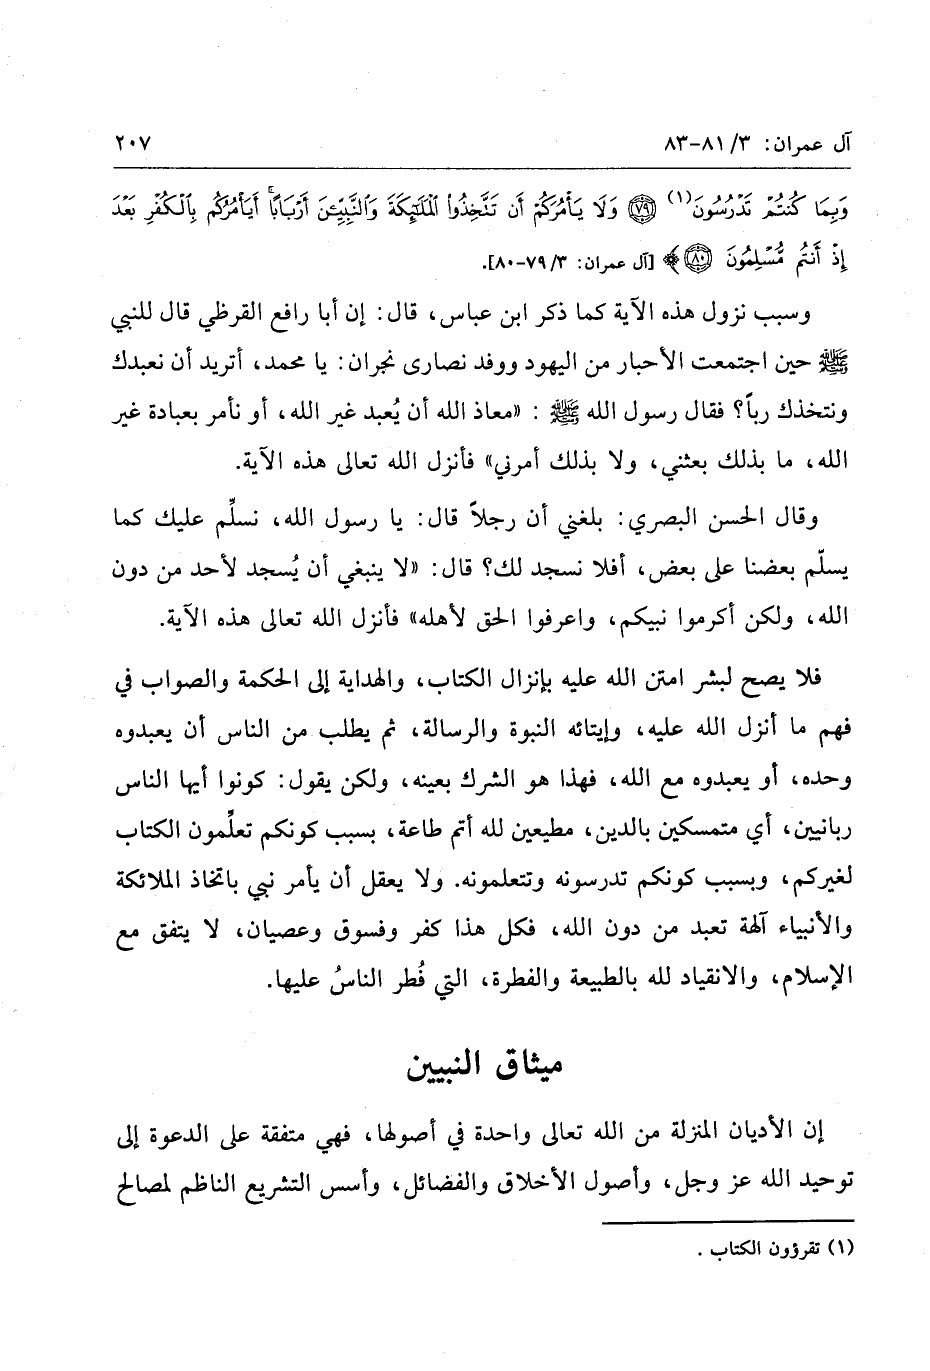 آل عمران: ٣/ ٨١-٨٣ ٢٠٧
وَبِمَا كُنتُمْ تَدْرُسُونَ(١) ﴿٧٩﴾ وَلَا يَأْمُرَكُمْ أَن تَتَّخِذُوا۟ ٱلْمَلَـٰٓئِكَةَ وَٱلنَّبِيِّـۧنَ أَرْبَابًا ۗ أَيَأْمُرُكُم بِٱلْكُفْرِ بَعْدَ
إِذْ أَنتُم مُّسْلِمُونَ ﴿٨٠﴾﴾ [آل عمران: ٣/ ٧٩-٨٠].
وسبب نزول هذه الآية كما ذكر ابن عباس، قال: إن أبا رافع القرظي قال للنبي
ﷺ حين اجتمعت الأحبار من اليهود ووفد نصارى نجران: يا محمد، أتريد أن نعبدك
ونتخذك رباً؟ فقال رسول الله ﷺ : «معاذ الله أن يُعبد غير الله، أو نأمر بعبادة غير
الله، ما بذلك بعثني، ولا بذلك أمرني» فأنزل الله تعالى هذه الآية.
وقال الحسن البصري: بلغني أن رجلاً قال: يا رسول الله، نسلِّم عليك كما
يسلّم بعضنا على بعض، أفلا نسجد لك؟ قال: «لا ينبغي أن يُسجد لأحد من دون
الله، ولكن أكرموا نبيكم، واعرفوا الحق لأهله» فأنزل الله تعالى هذه الآية.
فلا يصح لبشر امتن الله عليه بإنزال الكتاب، والهداية إلى الحكمة والصواب في
فهم ما أنزل الله عليه، وإيتائه النبوة والرسالة، ثم يطلب من الناس أن يعبدوه
وحده، أو يعبدوه مع الله، فهذا هو الشرك بعينه، ولكن يقول: كونوا أيها الناس
ربانيين، أي متمسكين بالدين، مطيعين لله أتم طاعة، بسبب كونكم تعلِّمون الكتاب
لغيركم، وبسبب كونكم تدرسونه وتتعلمونه. ولا يعقل أن يأمر نبي باتخاذ الملائكة
والأنبياء آلهة تعبد من دون الله، فكل هذا كفر وفسوق وعصيان، لا يتفق مع
الإسلام، والانقياد لله بالطبيعة والفطرة، التي فُطر الناسُ عليها.
ميثاق النبيين
إن الأديان المنزلة من الله تعالى واحدة في أصولها، فهي متفقة على الدعوة إلى
توحيد الله عز وجل، وأصول الأخلاق والفضائل، وأسس التشريع الناظم لمصالح
(١) تقرؤون الكتاب .